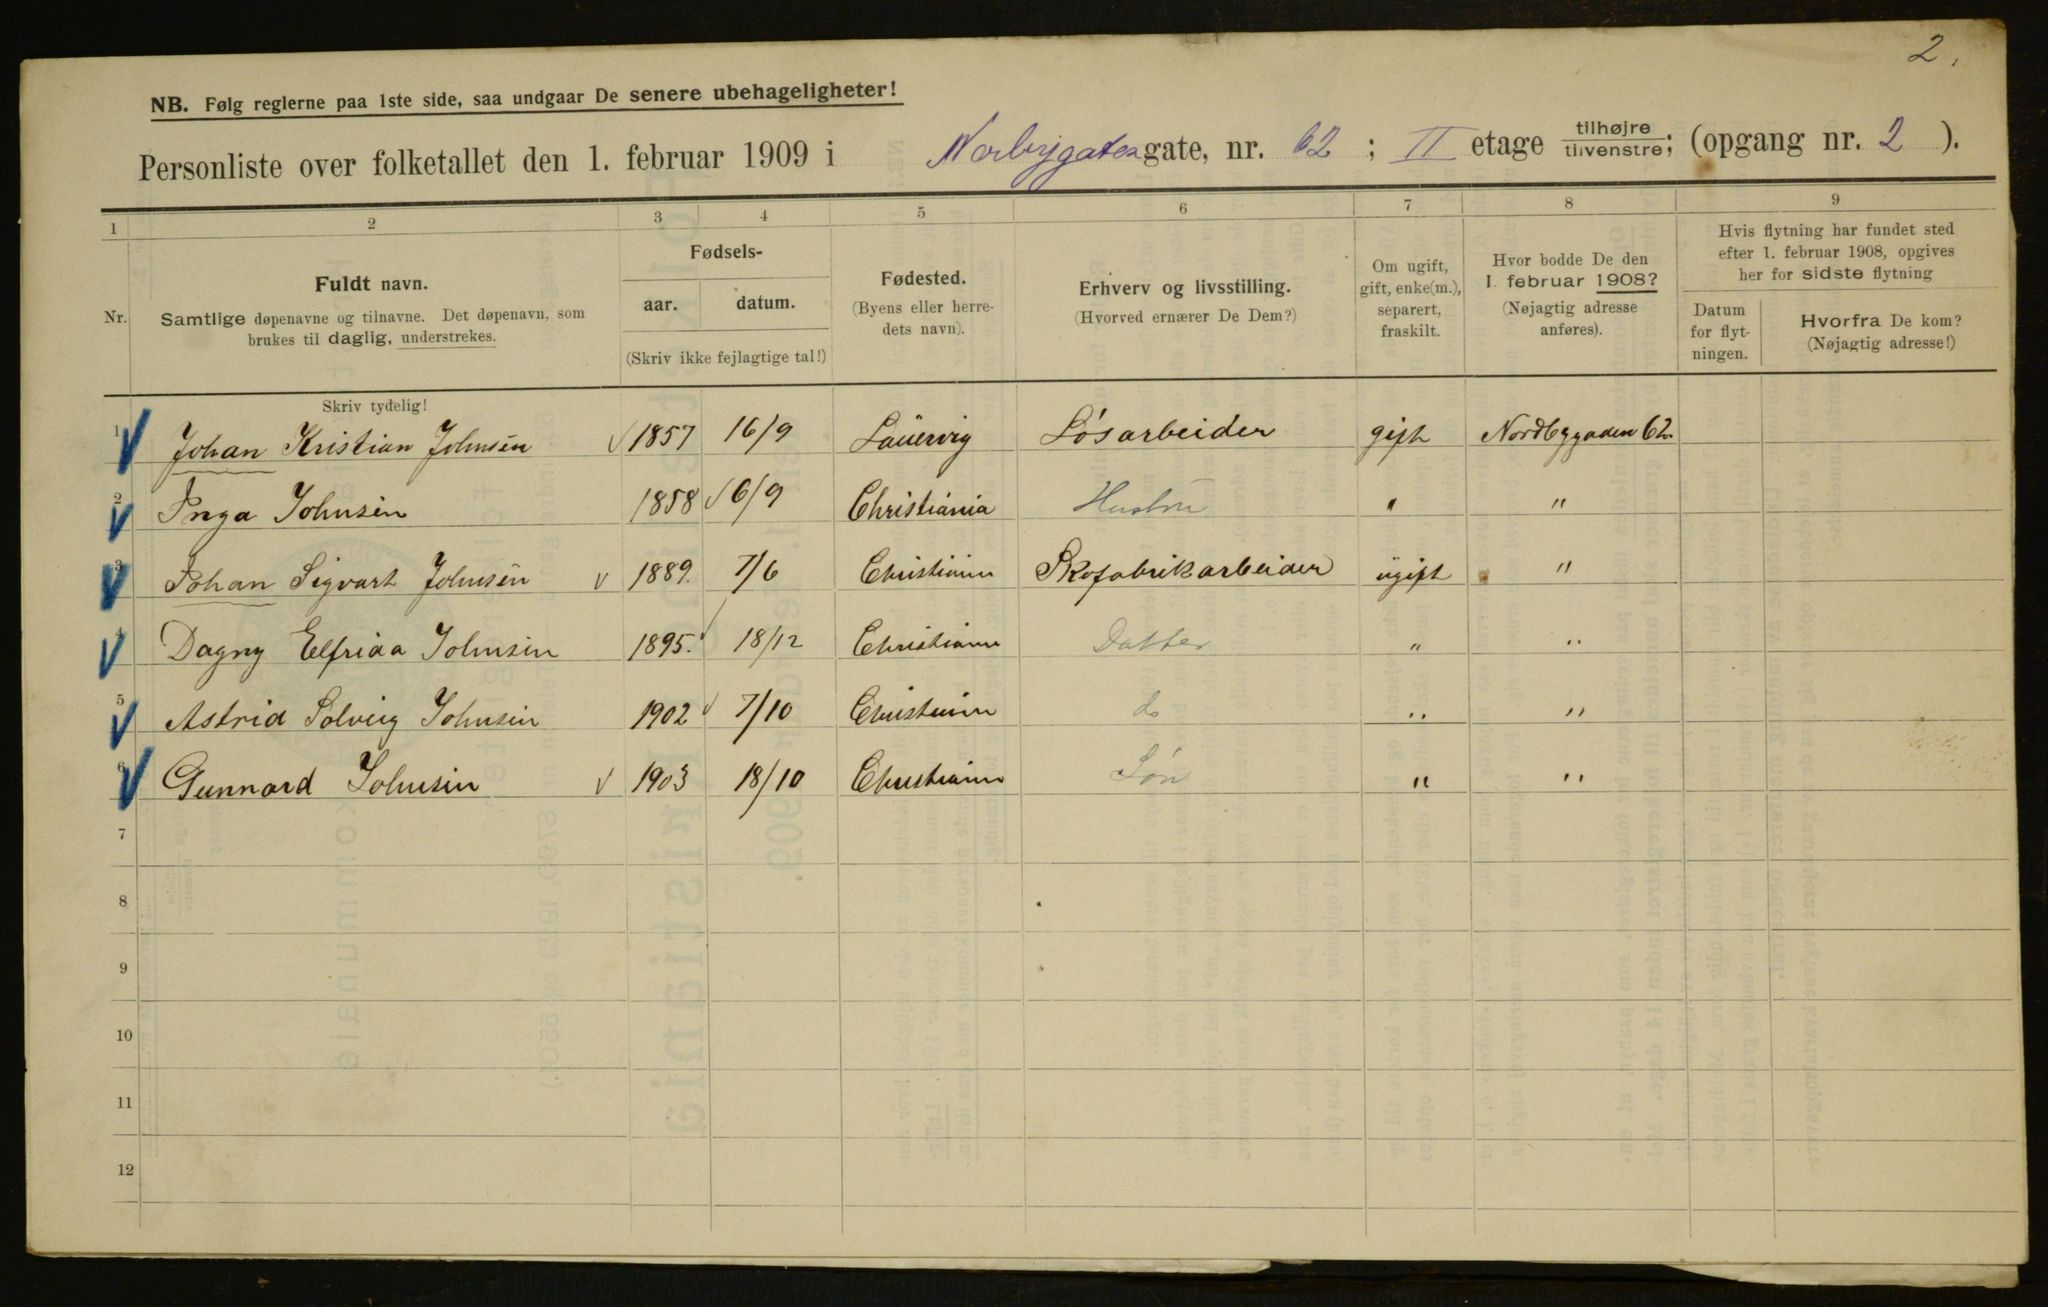 2.
NB. Følg reglerne paa 1ste side, saa undgaar De senere ubehageligheter!
Personliste over folketallet den 1. februar 1909 i Norbygaten gate, nr. 62; II etage tilhøjre tilvenstre; (opgang nr. 2 ).
1 2 3 4 5 6 7 8 9
Nr.
Fuldt navn.
Samtlige døpenavne og tilnavne. Det døpenavn, som
brukes til daglig, understrekes.
Fødsels-
aar. datum.
(Skriv ikke fejlagtige tal!)
Fødested.
(Byens eller herre-
dets navn).
Erhverv og livsstilling.
(Hvorved ernærer De Dem?)
Om ugift,
gift, enke(m.),
separert,
fraskilt.
Hvor bodde De den
1. februar 1908?
(Nøjagtig adresse
anføres).
Hvis flytning har fundet sted
efter 1. februar 1908, opgives
her for sidste flytning
Datum
for flyt-
ningen.
Hvorfra De kom?
(Nøjagtig adresse!)
Skriv tydelig!
1 Johan Kristian Johnsen 1857 16/9 Laurvig Løsarbeider gift Nordbygaden 62
2 Inga Johnsen 1858 6/9 Christiania Hustru " "
3 Johan Sigvart Johnsen 1889. 7/6 Christiania Skofabrikarbeider ugift "
4 Dagny Elfrida Johnsen 1895. 18/12 Christiania Datter " "
5 Astrid Solveig Johnsen 1902 7/10 Christiania do " "
6 Gunnard Johnsen 1903 18/10 Christiania Søn " "
7
8
9
10
11
12